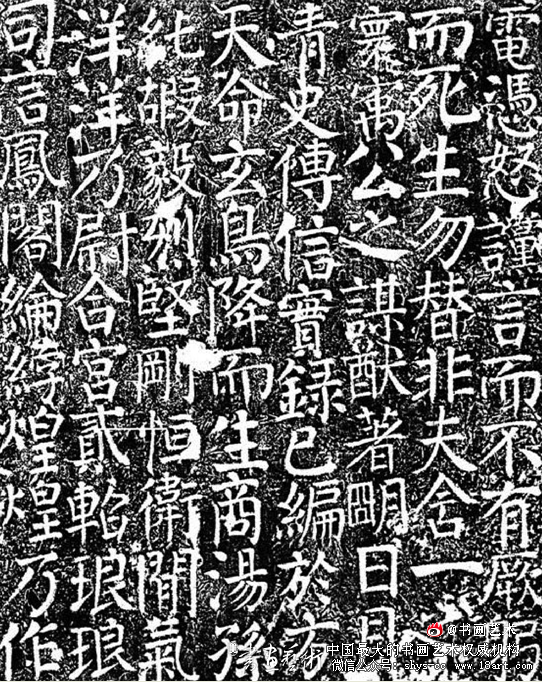 電憑怒謹言而不有厥躬
而死生勿替非夫含一
寰寓公之謀猷著明日月
青史傳信實録已編於方
天命玄鳥降而生商湯孫
純嘏毅烈堅剛恒衛閒氣
洋洋乃尉合宮貳軺琅琅
司言鳳閣綸綍煌煌乃作
@书画艺术
中国最大的书画艺术权威机构
微信公众号:shyscc www.18art.com